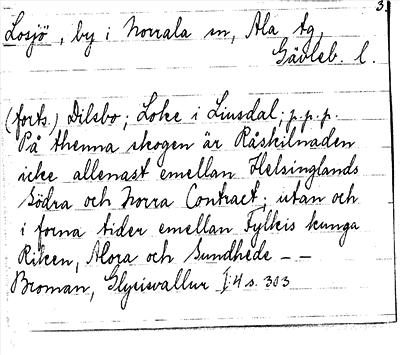 3.
Losjö, by i Norrala sn, Ala tg,
Gävleb. l.
(forts.) Dilsbo; Loke i Liusdal; p.p.p.
På thenna skogen är Råskilnaden
icke allenast emellan Helsinglands
Södra och Norra Contract; utan och
i forna tider emellan Fylkis kunga
Riken, Alora och Sundhede – –
Broman, Glysisvallur I:4 s. 303